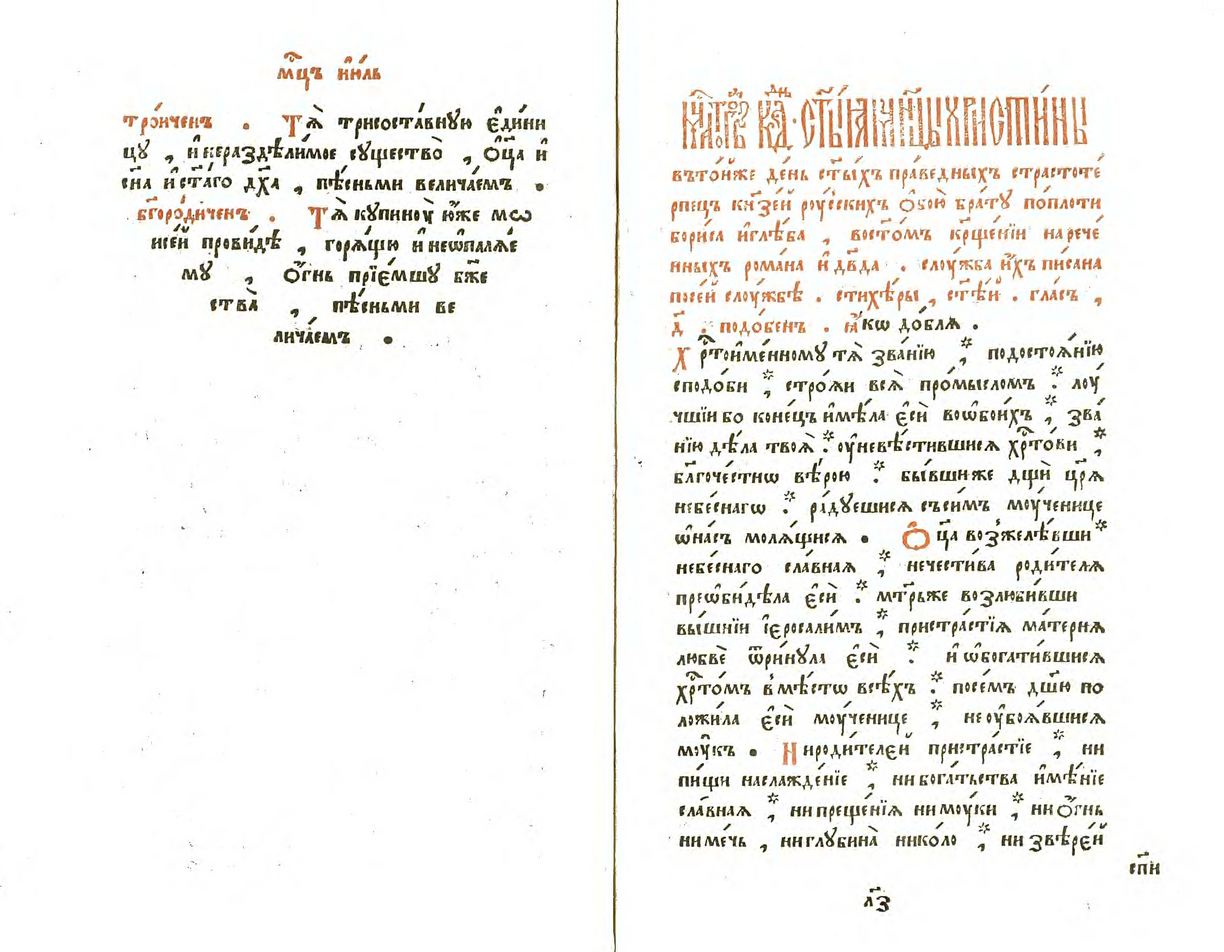 мⷭ҇цъ і҆ю́ль
тро́иченъ . Тѧ̀ трисоста́вную є҆ди́ни
цу , и҆ нераздѣ́лимое сꙋщество̀ , ѻ҆ц҃а и҆
сн҃а и҆ ст҃а́го дх҃а , пѣ́сньми велича́емъ .
бг҃оро́диченъ . Тѧ̀ купинꙋ̀ ю҆́же мѡ
исе́й прови́дѣ , горѧ́щꙋ и҆ неѡ҆палѧ́е
мꙋ , ѻ҆́гнь прїе́мшꙋ бж҃е
ства̀ , пѣ́сньми ве
лича́емъ .
мⷭ҇ца то́гѡ , к҃д . ст҃ы́ѧ мч҃ницы христи́ны
въто́йже де́нь ст҃ы́хъ пра́ведныхъ страстоте́
рпецъ кн҃зе́й роу́сскихъ ѻ҆бою̀ бра́тꙋ попло́ти
бори́са и҆глѣ́ба , восто́мъ кр҃ще́нїи нарече́
нныхъ рома́на и҆ дв҃да . слоу́жба и҆́хъ пи́сана
посе́й слоу́жбѣ . стихѣ́ры , ст҃ѣ́й . гла́съ ,
д҃ . подо́бенъ . ꙗ҆́кѡ до́блѧ .
Хрⷭ҇тоиме́нномꙋ тѧ̀ зва́нїю , подостоѧ́нїю
сподо́би , стро́ѧи всѧ̀ про́мысломъ . лоу́
чшїи бо коне́цъ и҆мѣ́ла є҆сѝ воѡ҆бои́хъ , зва́
нїю дѣ́ла твоѧ̀ . оу҆невѣ́стившисѧ хрⷭ҇то́ви ,
бл҃гоче́стнѡ вѣ́рою . бы́вшиже дщѝ цр҃ѧ̀
небе́снагѡ . ра́дꙋешисѧ съси́мъ моу́ченице
ѡ҆на́съ молѧ́щисѧ . Ѻ҆ц҃а возжелѣ́вши
небе́снаго сла́внаѧ , нечести́ва роди́телѧ
преѡ҆би́дѣла є҆сѝ . мт҃рьже возлюби́вши
вы́шнїи і҆ерⷭ҇али́мъ , пристра́стїѧ ма́тернѧ
любвѐ ѿри́нꙋла є҆сѝ . и҆ ѡ҆богати́вшисѧ
хрⷭ҇то́мъ вмѣ́стѡ всѣ́хъ . посе́мъ дш҃ю по
ложи́ла є҆сѝ моу́ченице , неоу҆боѧ́вшисѧ
моу́къ . Нироди́телей пристра́стїе , ни
пи́щи наслажде́нїе , нибога́тьства и҆мѣ́нїе
сла́внаѧ , нипреще́нїѧ нимоу́ки , ниѻ҆́гнь
ниме́чь , ниглꙋбина̀ нико́ло , низвѣре́й
лз҃